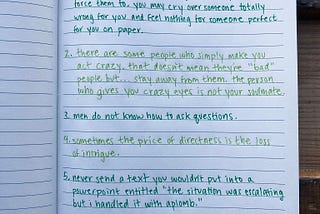 force them to. you may cry over someone totally
wrong for you and feel nothing for someone perfect
for you on paper.
2. there are some people who simply make you
act crazy. that doesn't mean they're "bad"
people but... stay away from them. the person
who gives you crazy eyes is not your soulmate.
3. men do not know how to ask questions.
4. sometimes the price of directness is the loss
of intrigue.
5. never send a text you wouldn't put into a
powerpoint entitled "the situation was escalating
but i handled it with aplomb."